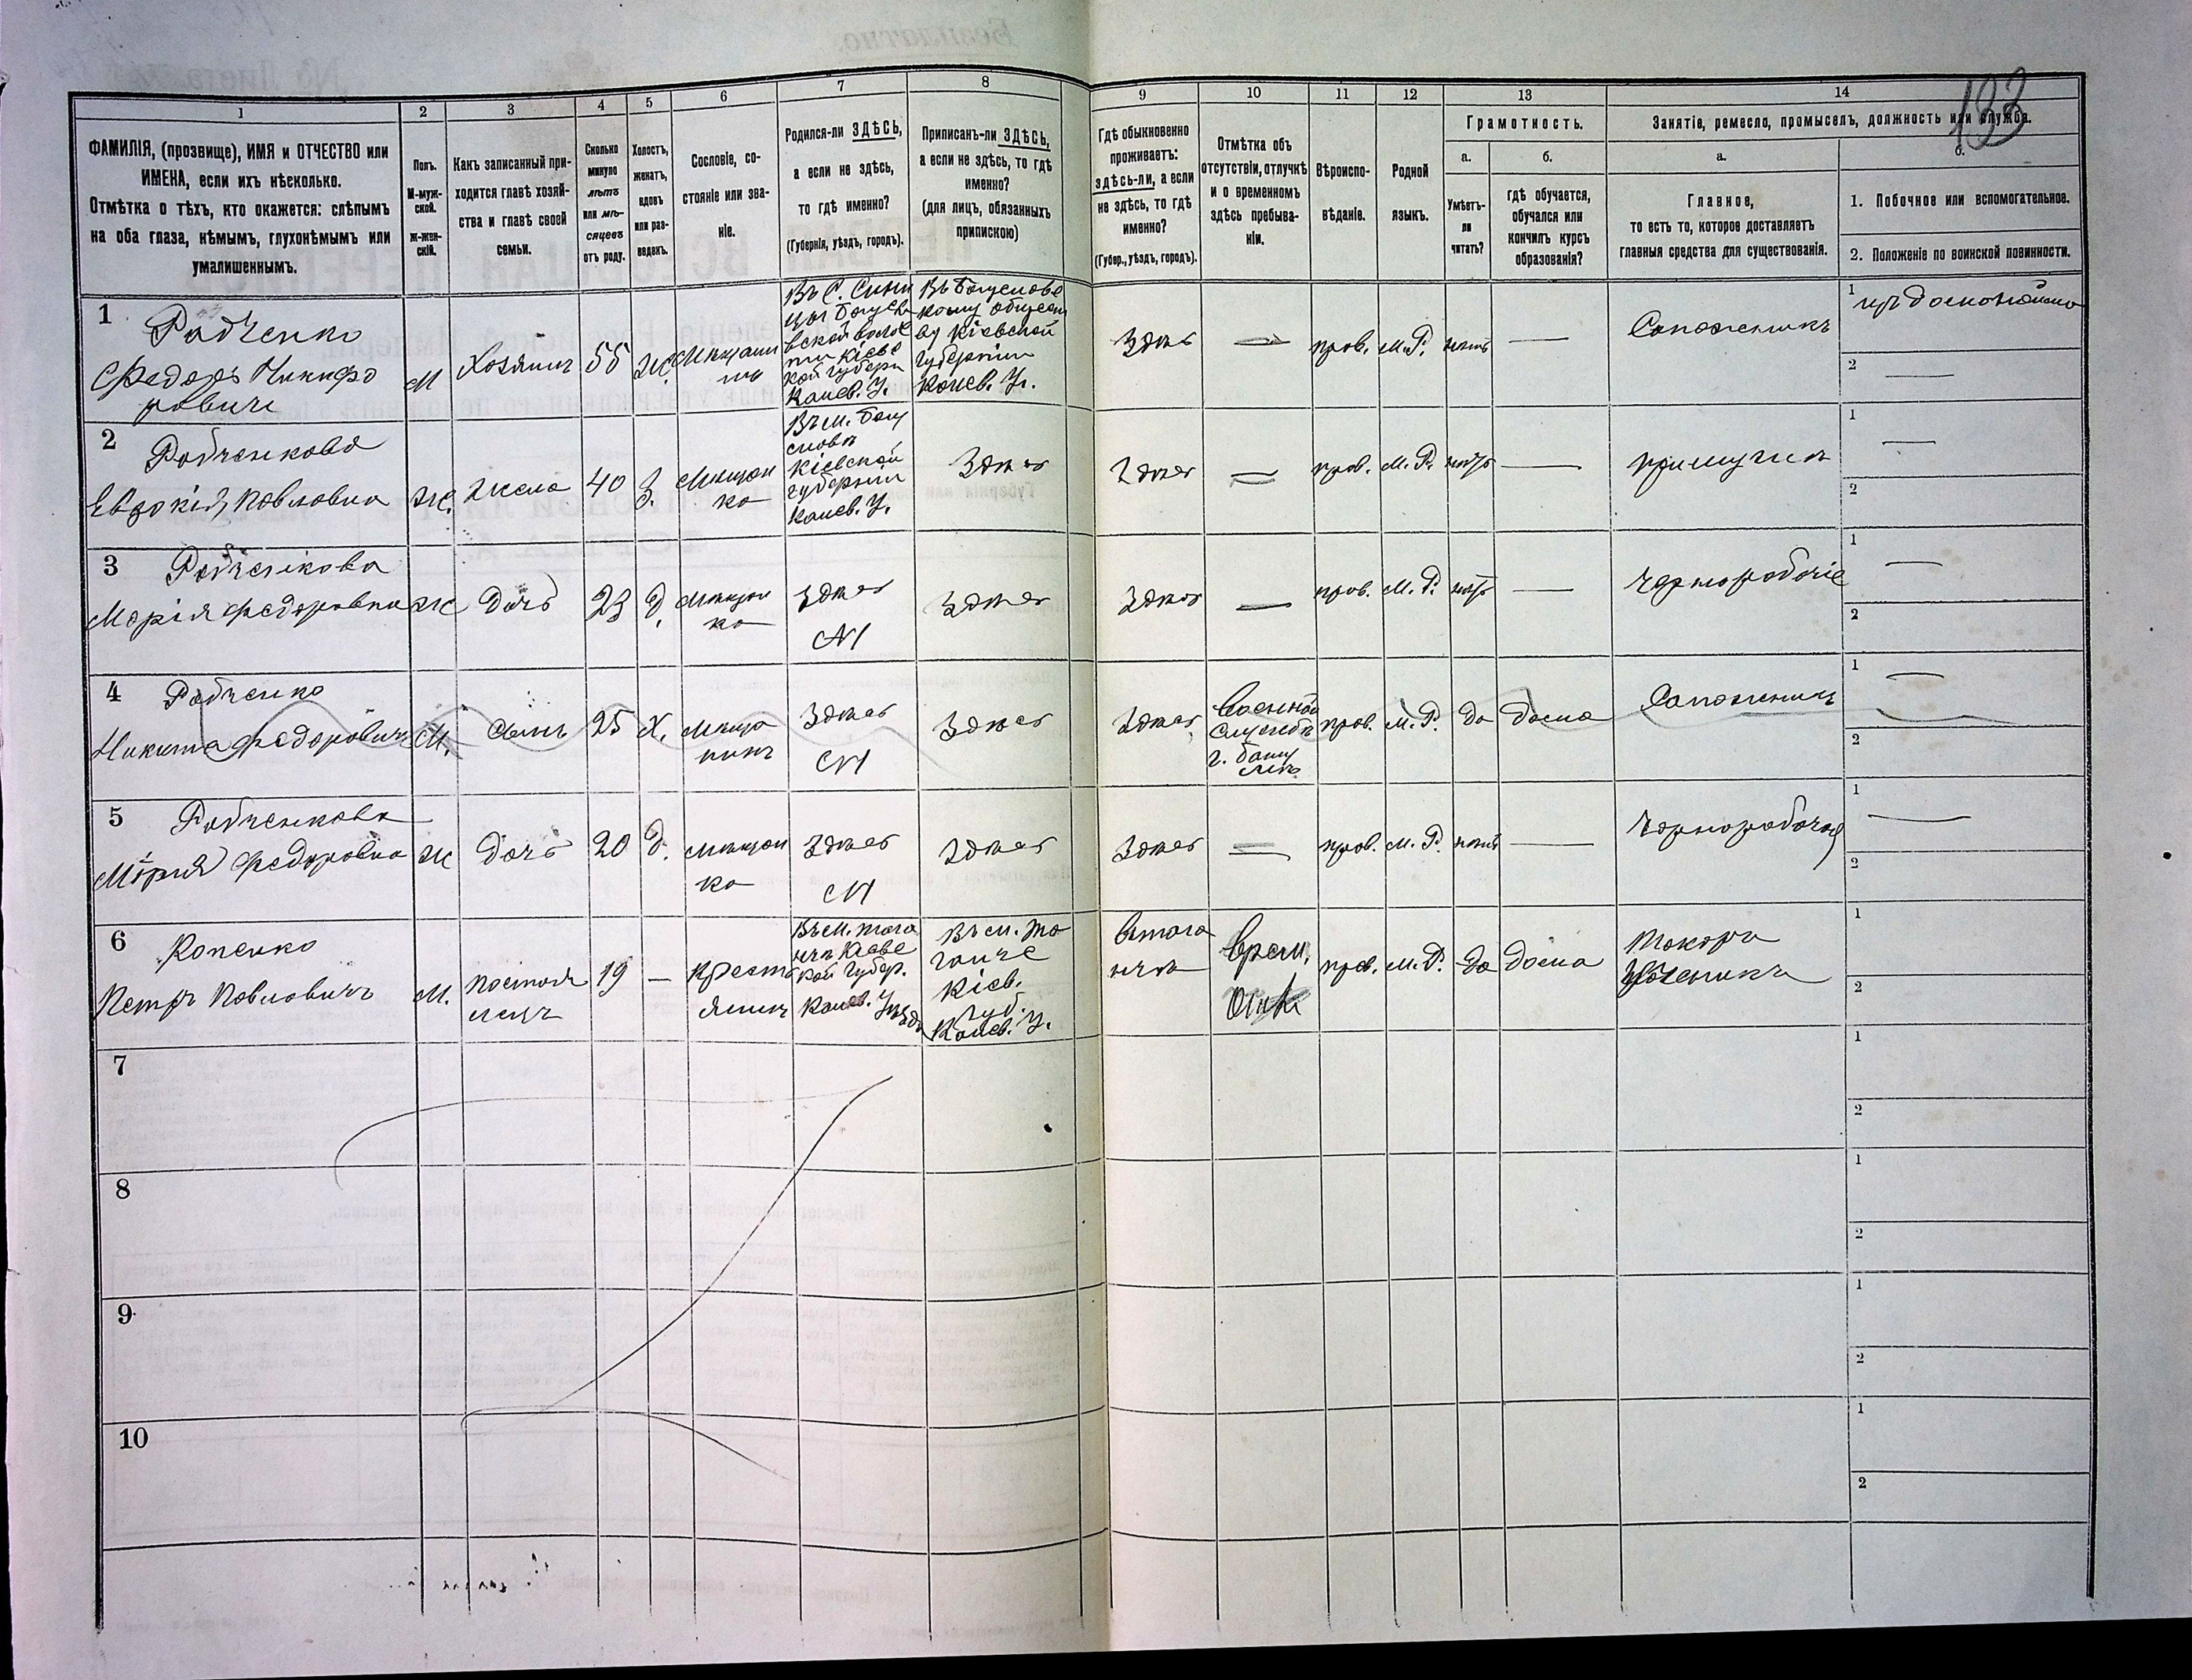 133
1
2
3
4
5
6
7
8
9
10
11
12
13
14
ФАМИЛІЯ, (прозвище), ИМЯ и ОТЧЕСТВО или
ИМЕНА, если ихъ нѣсколько.
Отмѣтка о тѣхъ, кто окажется: слѣпымъ
на оба глаза, нѣмымъ, глухонѣмымъ или
умалишеннымъ.
Полъ.
М-муж-
ской.
Ж-жен-
скій.
Какъ записанный при-
ходится главѣ хозяй-
ства и главѣ своей
семьи.
Сколько
минуло
лѣтъ
или мѣ-
сяцевъ
отъ роду.
Холостъ,
женатъ,
вдовъ
или раз-
веденъ.
Сословіе, со-
стояніе или зва-
ніе.
Родился-ли ЗДѢСЬ,
а если не здѣсь,
то гдѣ именно?
(Губернія, уѣздъ, городъ).
Приписанъ-ли ЗДѢСЬ,
а если не здѣсь, то гдѣ
именно?
(для лицъ, обязанныхъ
припискою)
Гдѣ обыкновенно
проживаетъ:
здѣсь-ли, а если
не здѣсь, то гдѣ
именно?
(Губер., уѣздъ, городъ).
Отмѣтка объ
отсутствіи, отлучкѣ
и о временномъ
здѣсь пребыва-
ніи.
Вѣроиспо-
вѣданіе.
Родной
языкъ.
Грамотность.
а.
Умѣетъ-
ли
читать?
б.
гдѣ обучается,
обучался или
кончилъ курсъ
образованія?
Занятіе, ремесло, промыселъ, должность или служба.
а.
Главное,
то есть то, которое доставляетъ
главныя средства для существованія.
б.
1. Побочное или вспомогательное.
2. Положеніе по воинской повинности.
1
Радченко
Федоръ Никифо
ровичь
М
Хозяинъ
55
Ж.
Въ С.
Кіевс
кой Губерн
Канев. У.
Кіевской
Губерніи
Канев. У.
Здѣсь
—
прав.
М.Р.
нѣтъ
—
Сапожникъ
1
2 —
2
Радченкова
Евдокія Павловна
Ж.
жена
40
З.
Мѣщан
ка
Въ м. Богу
славѣ
Кіевской
губерніи
Канев. У.
Здѣсь
Здѣсь
—
прав.
М. Р.
нѣтъ
—
1 —
2
3
Радченкова
Марія Федоровна
Ж
Дочь
23
д.
Мѣщан
ка
Здѣсь
N1
Здѣсь
Здѣсь
—
прав.
М. Р.
нѣтъ
—
Чернорабочіе
1 —
2
4
Радченко
Никита Федоровичъ
М.
Сынъ
25
Х.
Мѣща
нинъ
Здѣсь
N1
Здѣсь
Здѣсь
Военной
Службѣ
г.
прав.
М. Р.
да
дома
Сапожникъ
1 —
2
5
Радченкова
Марія Федоровна
Ж
Дочь
20
д.
Мѣщан
ка
Здѣсь
N1
Здѣсь
Здѣсь
—
прав.
М. Р.
нѣтъ
—
Чернорабочая
1 —
2
6
Копенко
Петръ Павловичъ
М.
Постоя
лецъ
19
—
Крест
янинъ
Въ м. Тага
нчѣ Кіевс
кой Губер.
Канев. Уѣзда
Въ м. Та
ганче
Кіев.
Губ.
Канев. У.
Втага
нчѣ
Врем.
прав.
М. Р.
да
дома
Токарь
1
2
7
1
2
8
1
2
9
1
2
10
1
2